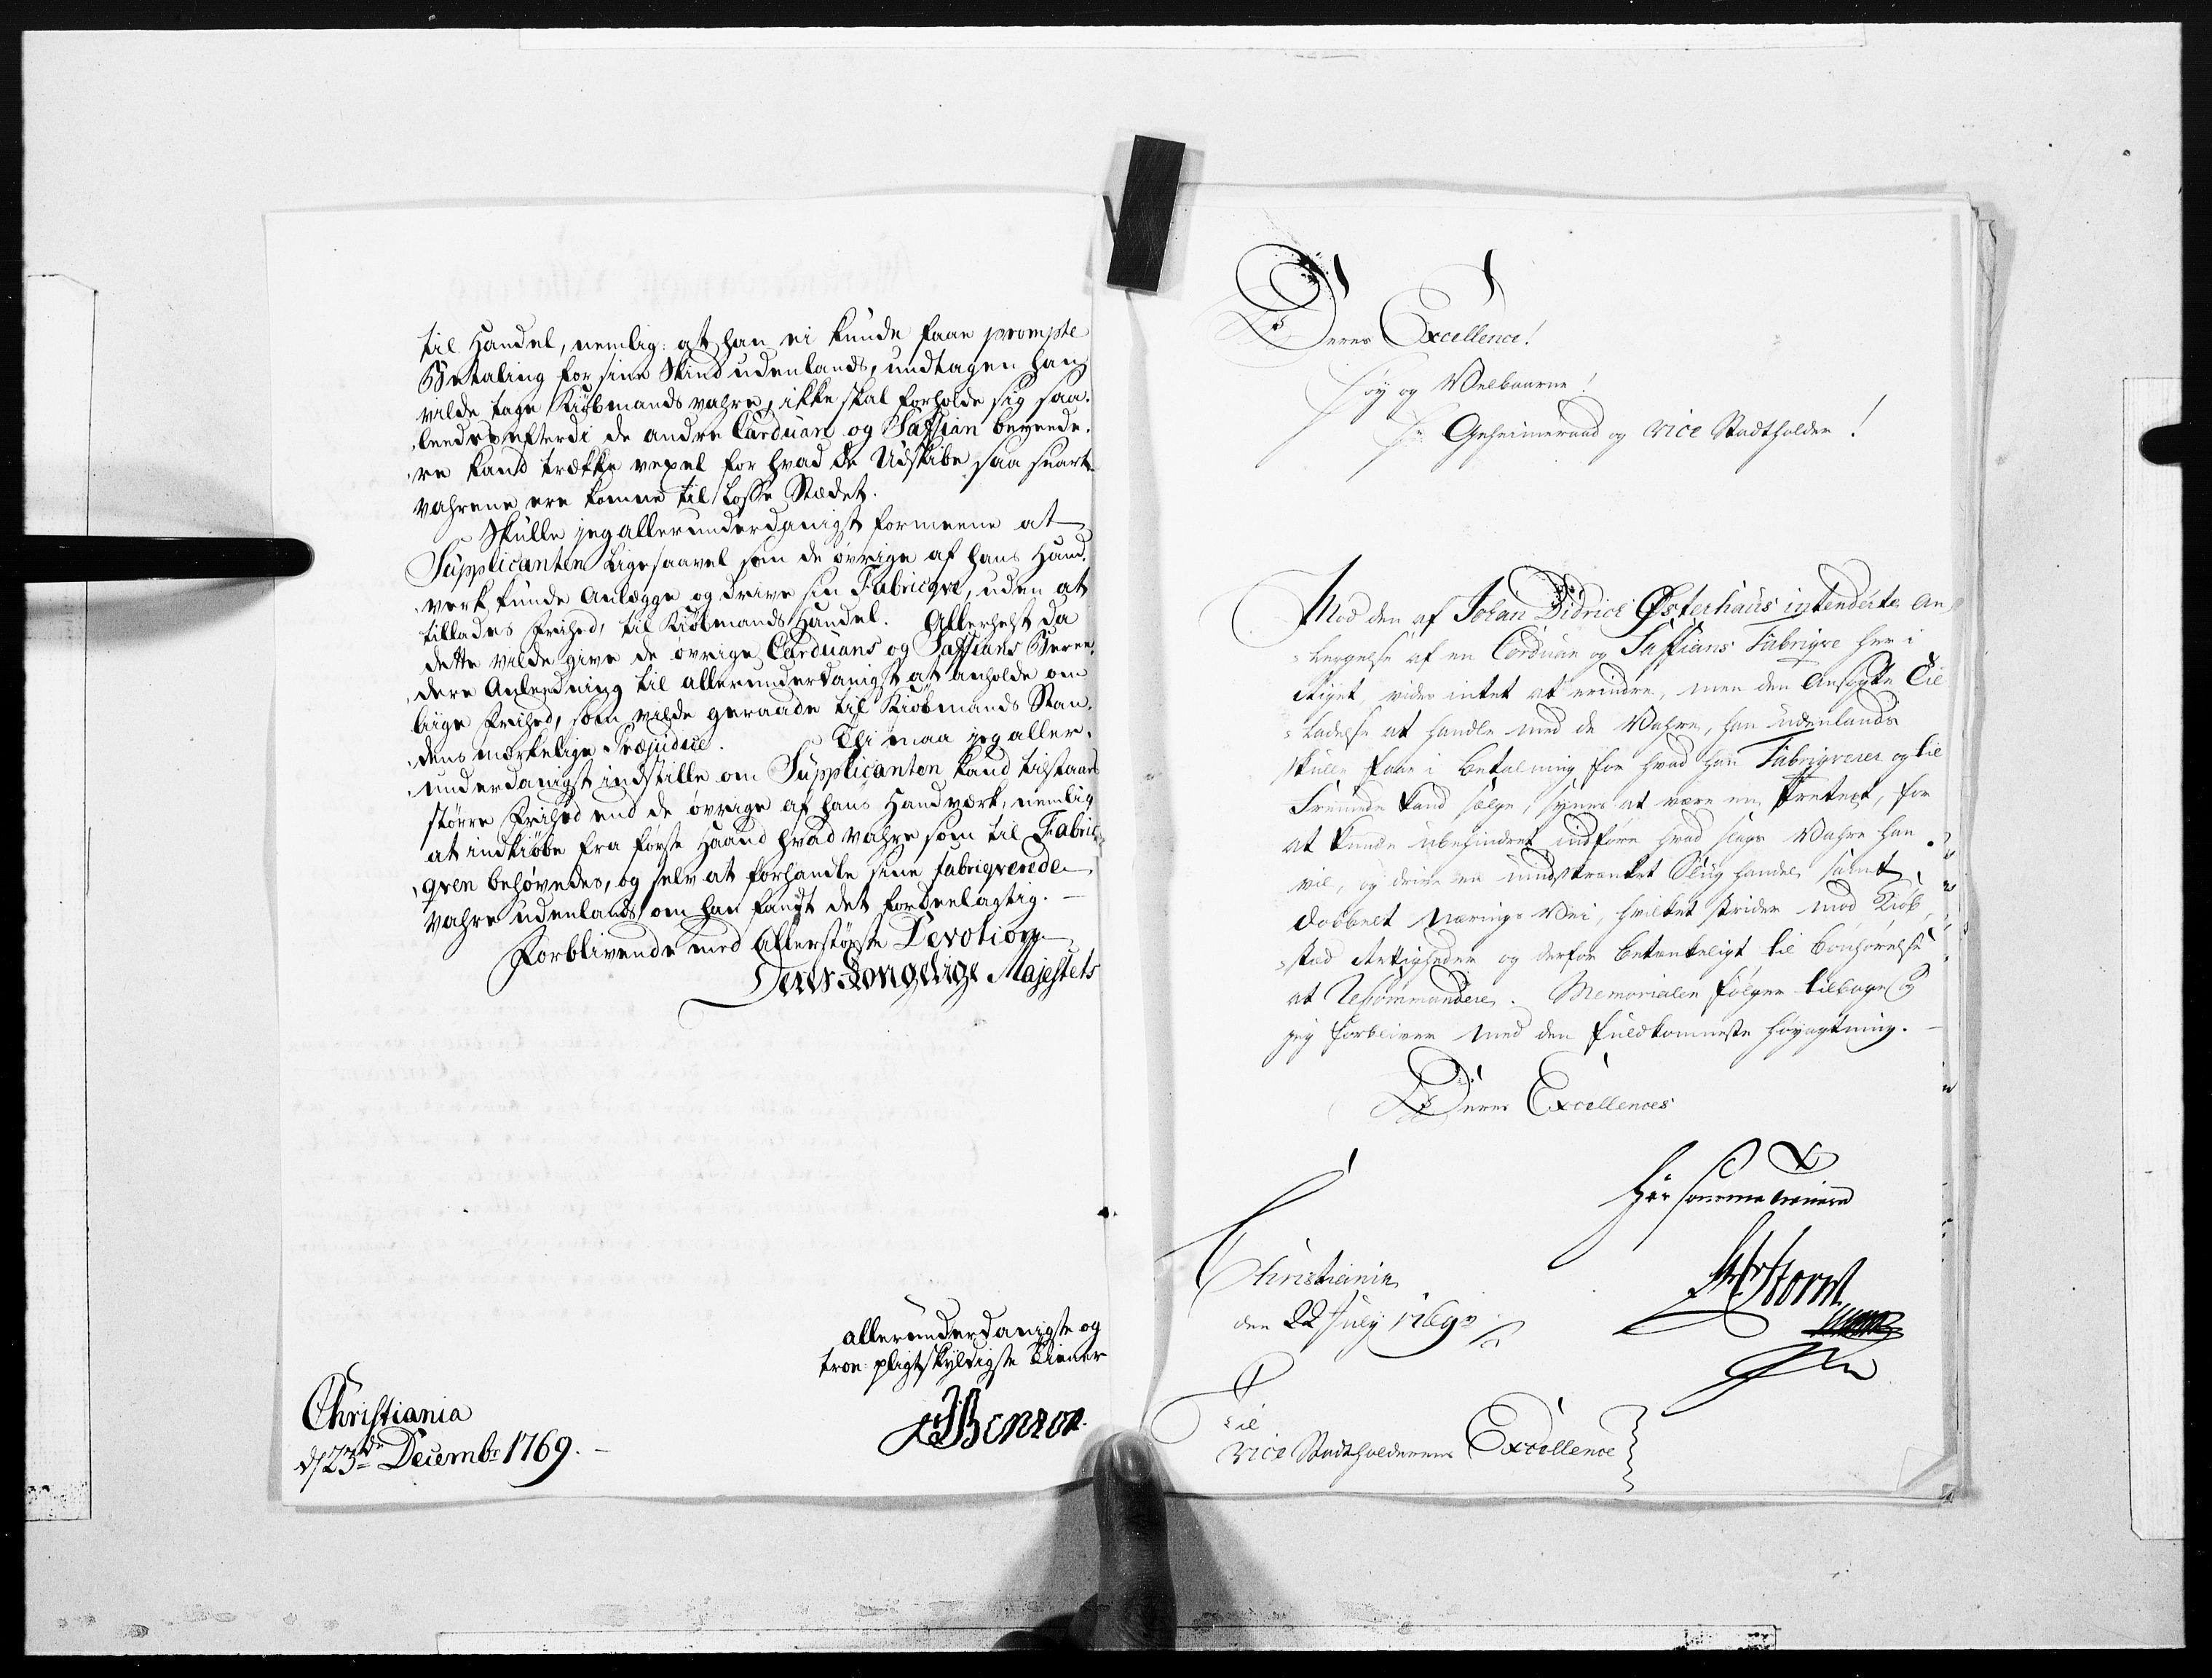 til Handel, nemlig: at han ei kunde faae prompte
Betaling for sine Skind udenlands, undtagen han
vilde tage Kiøbmands vahre, ikke skal forholde sig saa-
leedes efterdi de andre Carduan og Saffian bereede-
re kand trække vexel for hvad de Udskibe saa snart
vahrene ere komne til Losse Stædet.
Skulle jeg allerunderdanigst formeene at
Supplicanten Ligesaavel som de øvrige af hans Hand-
verk kunde Anlægge og drive sin Fabriqve, uden at
tillades Frihed, til Kiøbmands Handel. Allerhelst da
dette vilde give de øvrige Carduans og Saffians Beree-
dere Anleedning til allerunderdanigst at anholde om
liige Frihed, som vilde geraade til Kiøbmands Stan-
dens mærkelige Præjudice. Thi maa jeg aller-
underdanigst indstille om Supplicanten kand tilstaaes
større Frihed end de øvrige af hans Handværk, nemlig
at indkiøbe fra første Haand hvad vahre som til Fabri-
qven behøvedes, og selv at forhandle sine fabriqverede
vahre udenlands om han fandt det fordeelagtig.
Forblivende med Allerstørste Devotion
Deres Kongelige Majestets
allerunderdanigste og
troe pligtskyldigste tiener
JBenzon
Christiania
d/23de Decembr 1769.
Deres Excellence!
Høy og Velbaarne
Hr Geheimeraad og vice Stadtholder!
Mod den af Johan Didrich Østerhaus intenderte An-
læggelse af en Corduan og Saffians Fabriqve her i
Riget, vides intet at erindre, men den Ansøgte Til-
ladelse at handle med de Vahre, han udenlands
skulle faae i Betalning for hvad han Fabriqverer og til
Fremmede kand sælge, synes at være en Pretext, for
at kunde ubehindret indføre hvad slags Vahre han
vil, og drive en uindskrænket handel samt
dobbelt Nærings Vei, hvilket strider mod Kiøb-
stad Rettigheder og derfor betænkeligt til bønhørelse
at Recommandere. Memorialen følger tilbage og
jeg forbliver med den fuldkomneste høyagtning.
Deres Excellences
Storm
Christiania
den 22 July 1769
Til
vice Stadtholderens Excellence